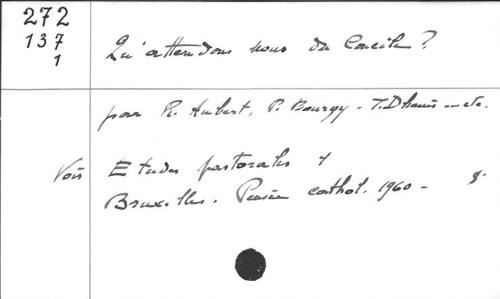 272
137
1
Qu'attendons nous du Concile?
par R. Aubert, P. Bourgy - T. Dhanis - etc.
Voir Etudes pastorales
Bruxelles. Pensée cathol. 1960 -